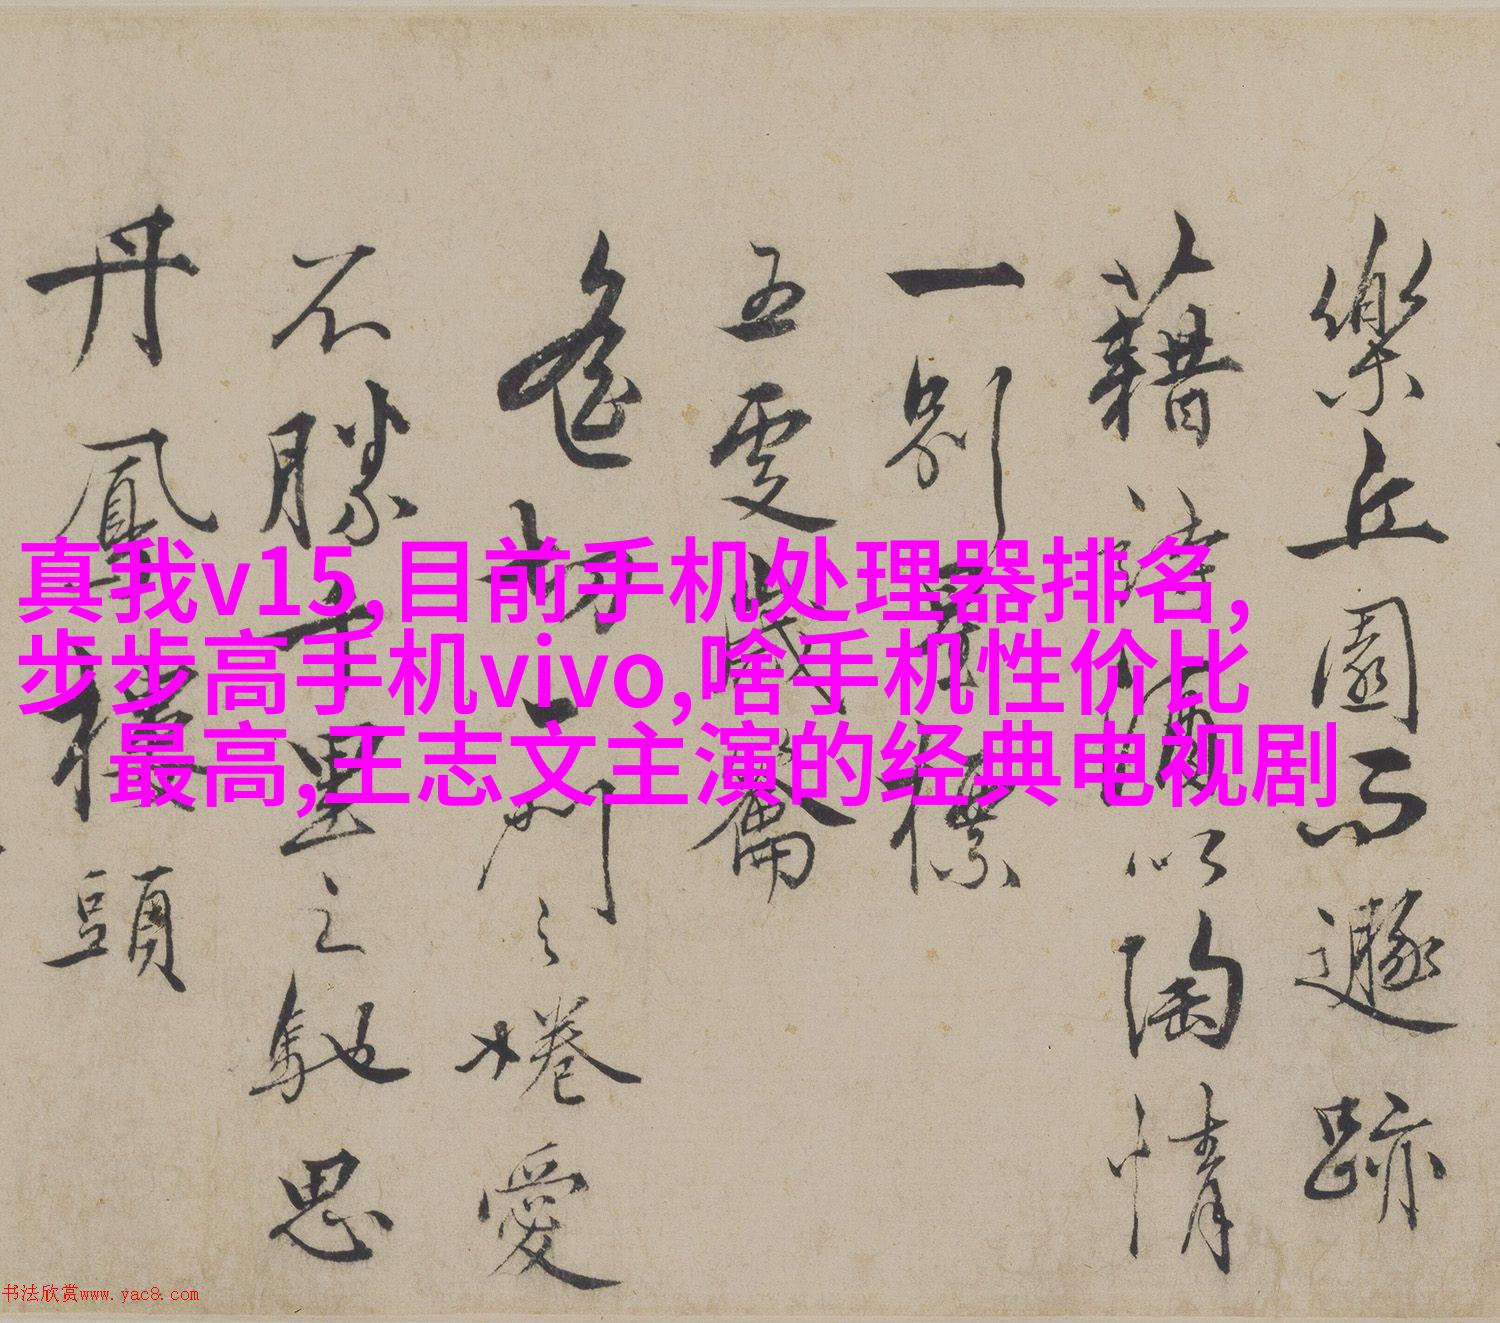 樂丘園而遯跡
藉詩酒以陶情
一別標
五更歲籥
遙切門之婘愛
不勝千里之馳思
丹鳳樓頭
真我v15,目前手机处理器排名,
步步高手机vivo,啥手机性价比
最高,王志文主演的经典电视剧
书法欣赏www.yac8.com